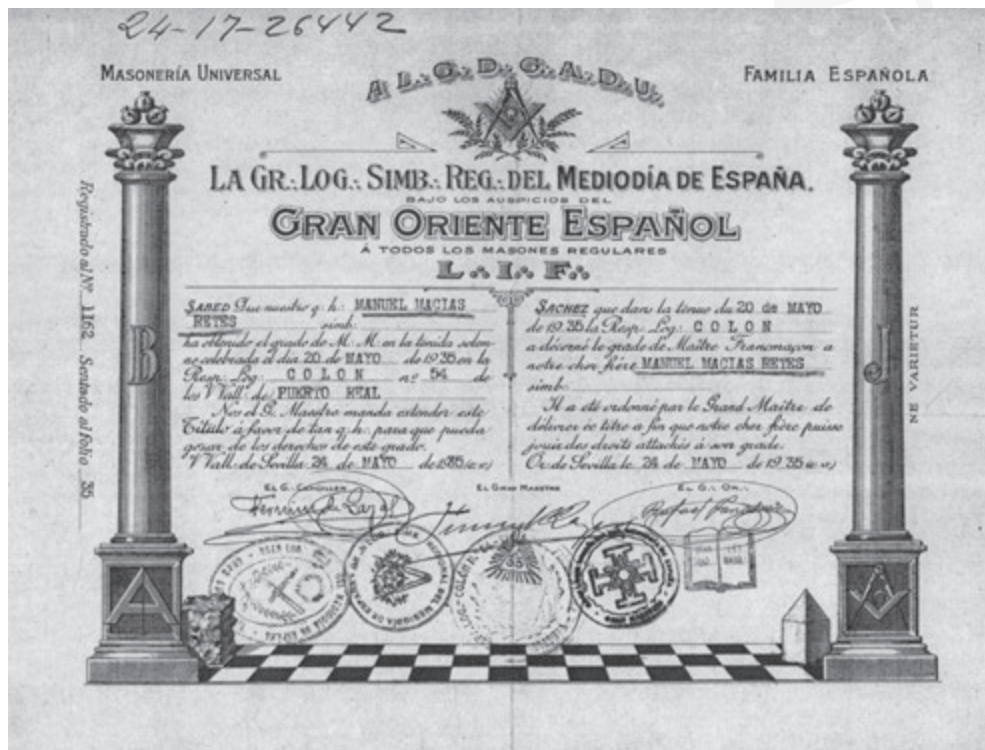 24-17-26442
MASONERÍA UNIVERSAL
FAMILIA ESPAÑOLA
A L∴G∴D∴G∴A∴D∴U∴
LA GR∴LOG∴ SIMB∴ REG∴ DEL MEDIODÍA DE ESPAÑA.
BAJO LOS AUSPICIOS DEL
GRAN ORIENTE ESPAÑOL
Á TODOS LOS MASONES REGULARES
L∴I∴F∴
Registrado al Nº 1162 Sentado al folio 35
B
SABED Que nuestro q∴h∴ MANUEL MACIAS
RETES simb∴
ha obtenido el grado de M∴M∴ en la tenida solem-
ne celebrada el día 20 de MAYO de 1935 en la
Resp∴ Log∴ COLON nº 54 de
los VVall∴ de PUERTO REAL
Nos el G∴ Maestro manda extender este
Título á favor de tan q∴h∴ para que pueda
gozar de los derechos de este grado.
VVall∴ de Sevilla 24 de MAYO de 1935 (e∴v∴)
SACHEZ que dans la tenue du 20 de MAYO
de 1935 la Resp∴ Log∴ COLON
a décorné le grade de Maître Francmaçon a
notre cher frère MANUEL MACIAS RETES
simb∴
Il a été ordonné par le Grand Maître de
délivrer ce titre a fin que notre cher frère puisse
jouir des droits attachés á son grade.
Or∴ de Sevilla le 24 de MAYO de 1935 (e∴v∴)
J
NE VARIETUR
EL G∴ CANCILLER
EL GRAN MAESTRE
EL G∴ OR∴
33
A
G